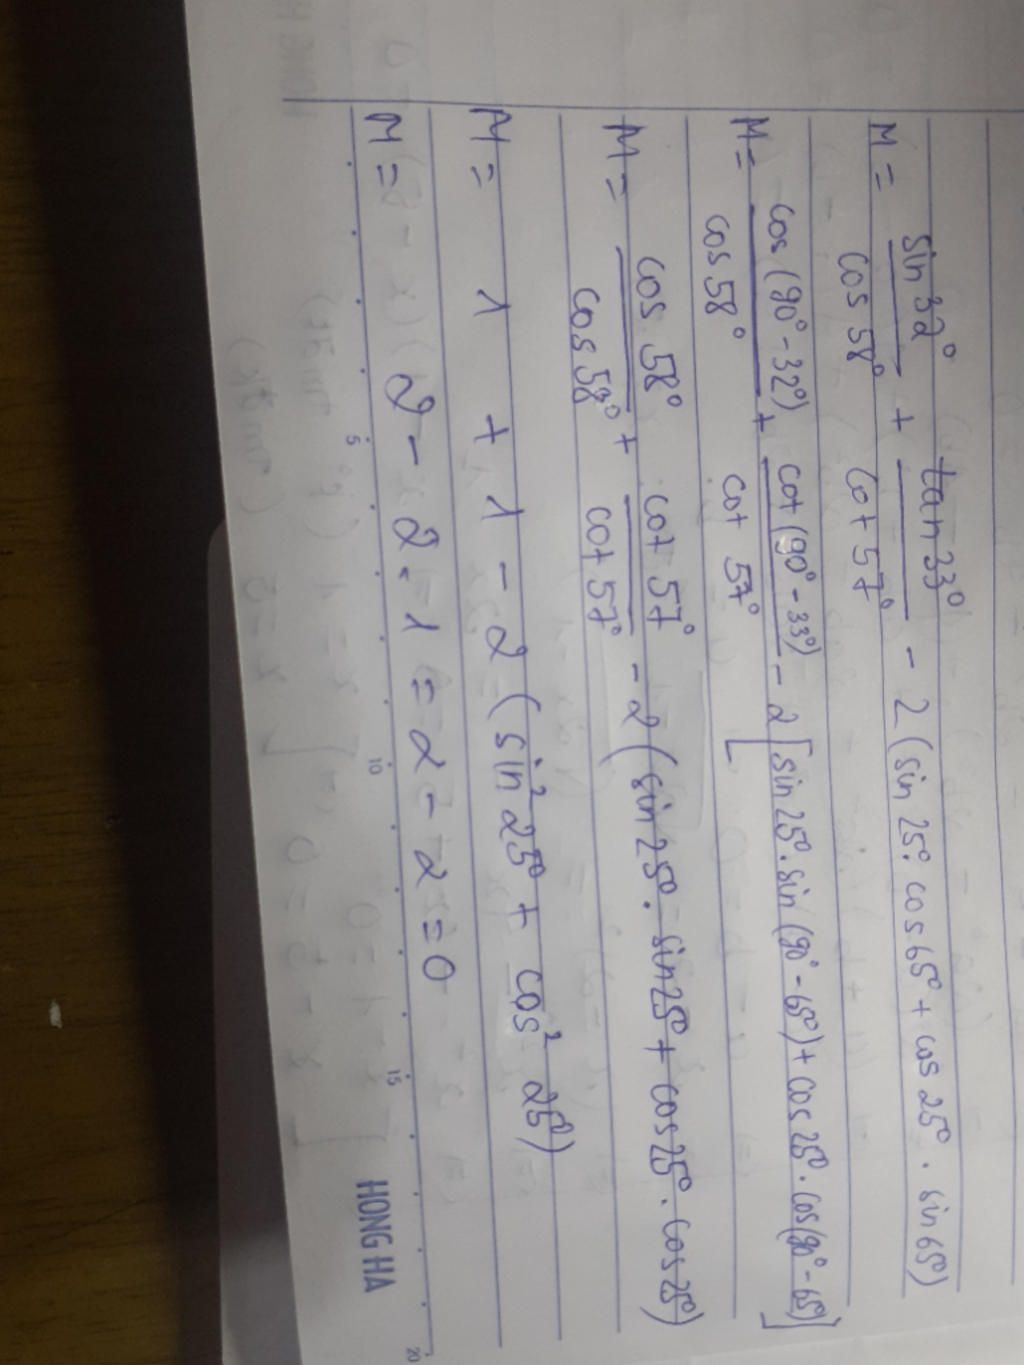 M = sin 32° / cos 58° + tan 33° / cot 57° - 2 (sin 25° . cos 65° + cos 25° . sin 65°)
M = cos (90° - 32°) / cos 58° + cot (90° - 33°) / cot 57° - 2 [sin 25° . sin (90° - 65°) + cos 25° . cos (90° - 65°)]
M = cos 58° / cos 58° + cot 57° / cot 57° - 2 (sin 25° . sin 25° + cos 25° . cos 25°)
M = 1 + 1 - 2 (sin² 25° + cos² 25°)
M = 2 - 2 . 1 = 2 - 2 = 0
5 10 15 20
HONG HA